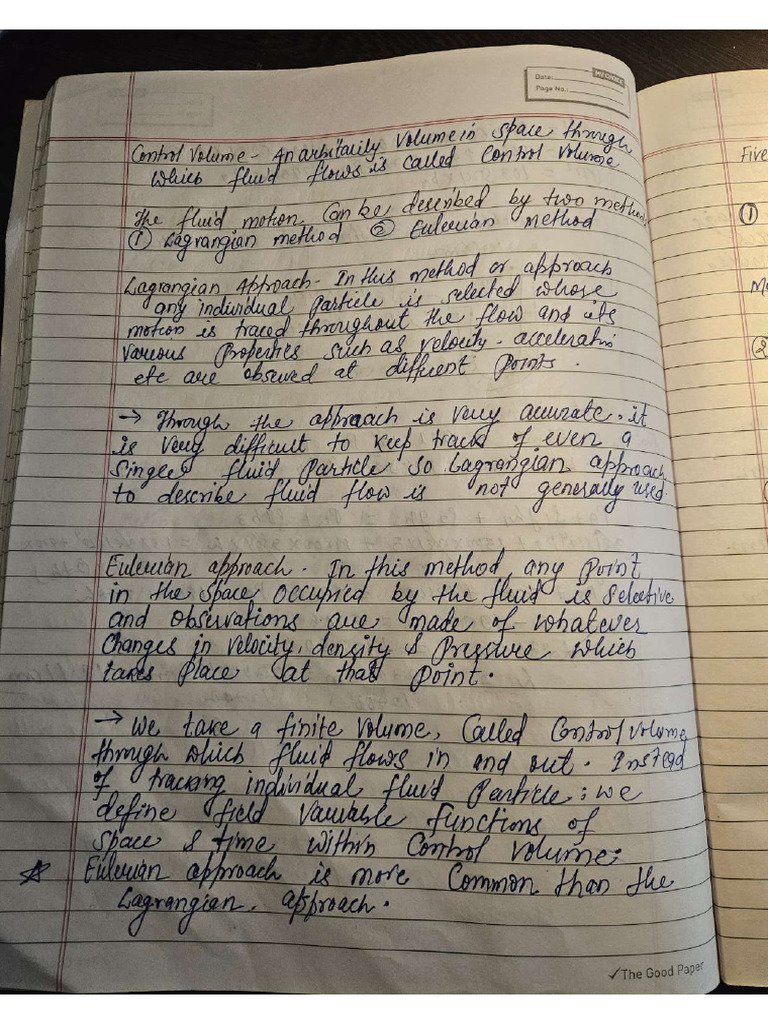 Date:
MY CHOICE
Page No.:
Control Volume - An arbitarily Volume in space through
which fluid flows is called Control Volume
The fluid motion. Can be described by two methods
① Lagrangian method ② Eulerian method
Lagrangian Approach - In this method or approach
any individual Particle is selected whose
motion is traced throughout the flow and its
various Properties such as velocity - acceleration
etc are observed at different Points.
→ Through the approach is very accurate, it
is very difficult to keep track of even a
Singel fluid Particle so Lagrangian approach
to describe fluid flow is not generally used.
Eulerian approach - In this method any Point
in the space occupied by the fluid is Selective
and observations are made of whatever
changes in velocity, density & Pressure which
takes place at that point.
→ We take a finite Volume, Called Control volume
through which fluid flows in and out. Instead
of tracking individual fluid Particle; we
define field Variable functions of
space & time within Control volume;
☆ Eulerian approach is more Common than the
Lagrangian, approach.
✓The Good Paper
Five
①
②